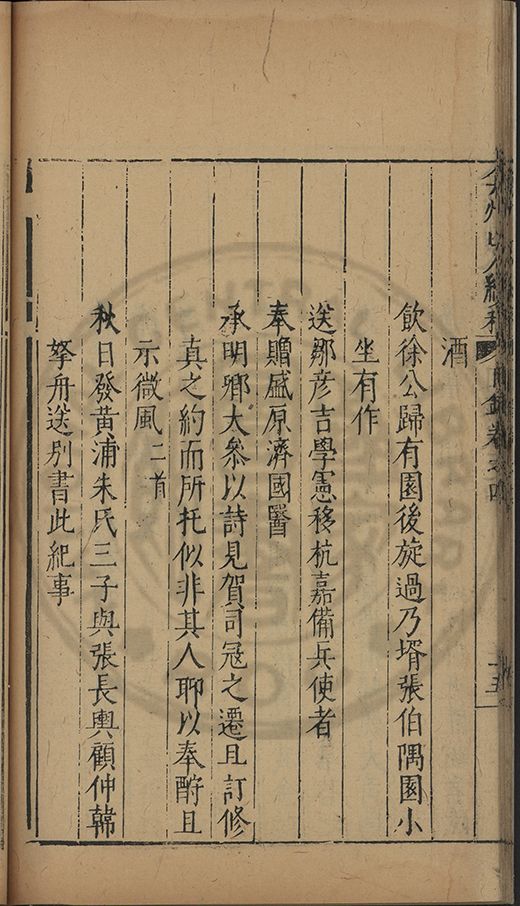 弇州山人續稿 目錄卷之四
酒
飲徐公歸有園後旋過乃壻張伯隅園小
坐有作
送鄒彥吉學憲移杭嘉備兵使者
奉贈盛原濟國醫
承明卿大參以詩見賀司冦之遷且訂修
真之約而所托似非其人聊以奉酧且
示微風二首
秋日發黃浦朱氏三子與張長輿顧仲韓
拏舟送別書此紀事